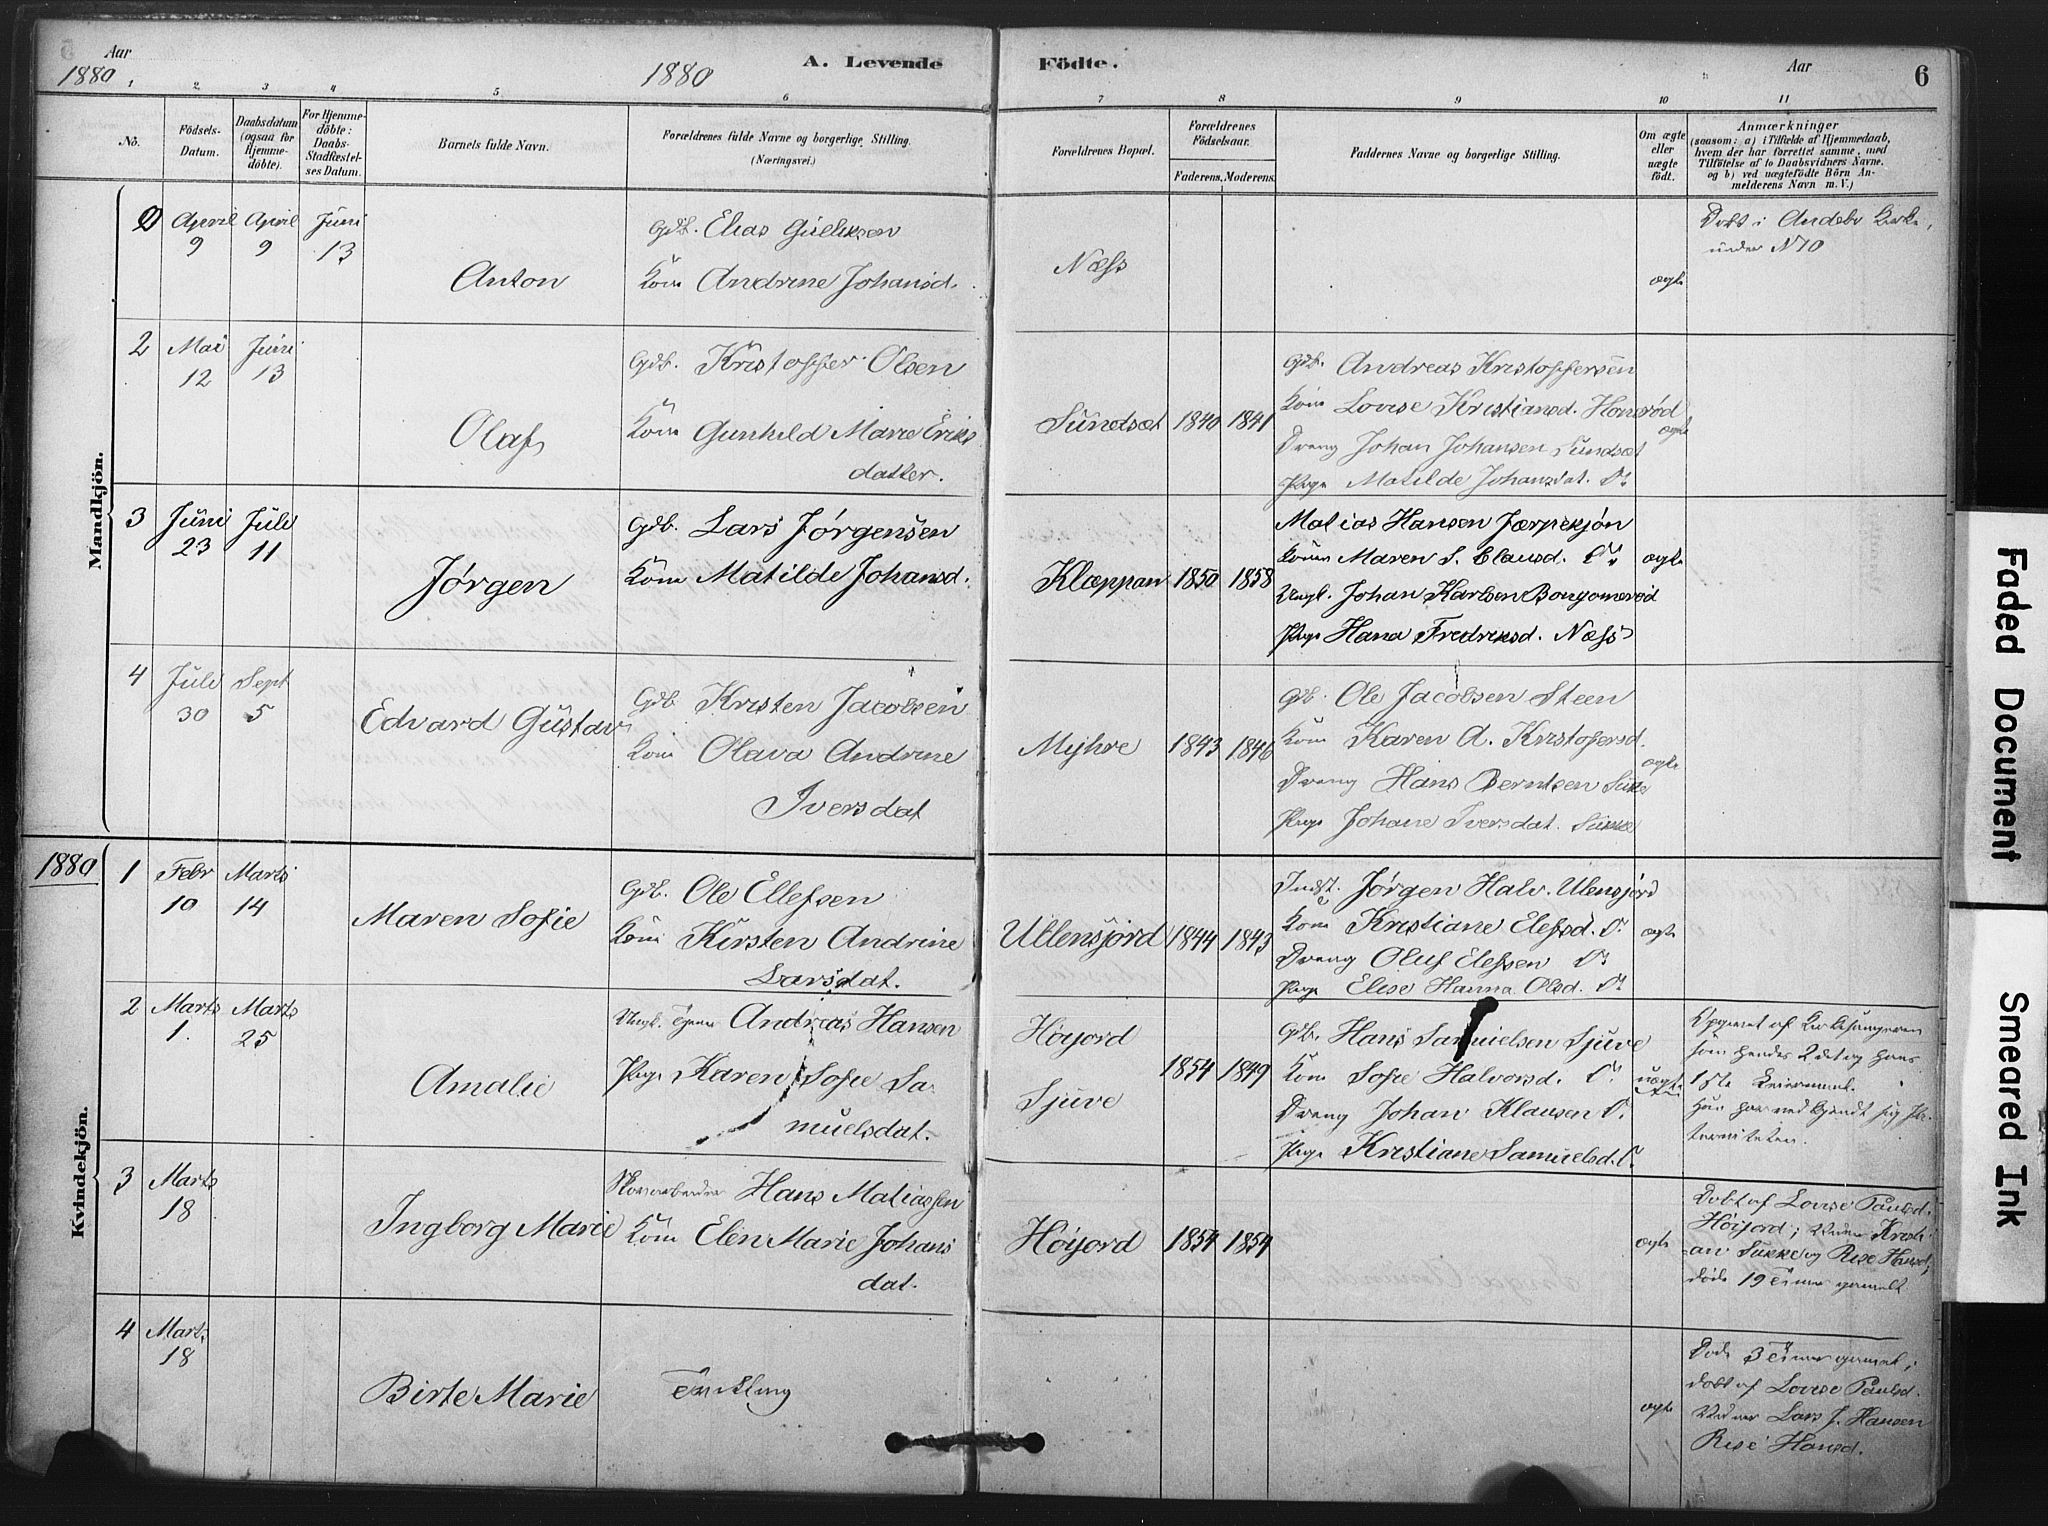 Aar
1880
1880
A. Levende Födte.
Aar
6
1 2 3 4 5 6 7 8 9 10 11
No.
Födsels-Datum.
Daabsdatum (ogsaa for Hjemme-döbte).
For Hjemme-döbte: Daabs-Stadfæstel-ses Datum.
Barnets fulde Navn.
Forældrenes fulde Navne og borgerlige Stilling.
(Næringsvei.)
Forældrenes Bopæl.
Forældrenes Födselsaar.
Faderens. Moderens.
Faddernes Navne og borgerlige Stilling.
Om ægte eller uægte födt.
Anmærkninger
(saasom: a) i Tilfælde af Hjemmedaab,
hvem der har forrettet samme, med
Tilföielse af to Daabsvidners Navne,
og b) ved uægtefödte Börn An-
melderens Navn m. V.)
Mandkjön.
April 9
April 9
Juni 13
Anton
Gdb. Elias Gulliksen
Kone Andrine Johansd.
Næss
ægte
Døbt i Andebu Kirke,
under N 10
2
Mai 12
Juni 13
Olaf
Gdb. Kristoffer Olsen
Kone Gunhild Marie Eriks
datter.
Sundset
1840 1841
Gdb. Andreas Kristoffersen
Kone Lovise Kristiansd. Honerød
Dreng Johan Johansen Sundset
Pige Matilde Johansdat. Do
ægte
3
Juni 23
Juli 11
Jørgen
Gdb. Lars Jørgensen
Kone Matilde Johansd.
Klæppan
1850 1858
Matias Hansen Jærpekjøn
Kone Maren S. Clausd. Do
Ungk. Johan Karlsen Bongomerød
Pige Hana Fredriksd. Næss
ægte
4
Juli 30
Sept 5
Edvard Gustav
Gdb Kristen Jacobsen
Kone Olava Andrine
Iversdat
Myhre
1843 1846
Gdb. Ole Jacobsen Steen
Kone Karen A. Kristofersd.
Dreng Hans Berntsen Sukke
Pige Johane Iversdat. Sukke
ægte
1880
Kvindekjön.
1
Febr 10
Marts 14
Maren Sofie
Gdb. Ole Ellefsen
Kone Kirsten Andrine
Larsdat.
Ullensjord
1844 1843
Indst. Jørgen Halv. Ulensjord
Kone Kristiane Elefsd. Do
Dreng Oluf Elefsen Do
Pige Elise Hanna Olsd. Do
ægte
2
Marts 1.
Marts 25
Amalie
Ungk. Andreas Hansen
Pige Karen Sofie Sa-
muelsdat.
Høijord
Sjuve
1854 1849
Gdb. Hans Samuelsen Sjuve
Kone Sofie Halvorsd. Do
Dreng Johan Klausen Do
Pige Kristiane Samuelsd. Do
uægte
Opgivet af Kirkesangeren
som hendes 2det og hans
1ste Leiermaal.
Han har vedkjendt sig Pa-
terniteten.
3
Marts 18
Ingborg Marie
Hans Matiassen
Kone Elen Marie Johans
dat.
Høijord
1854 1854
ægte
Døbt af Lovise Paulsd.
Høijord; Vidner Kristi-
an Sukke og Rise Hansd;
døde 19 Timer gammelt
4
Marts 18
Birte Marie
Tvilling
ægte
Døde 3 Timer gamel,
døbt af Lovise Paulsd.
Vidner Lars J. Hansen
Rise Hansd.
Faded Document
Smeared Ink